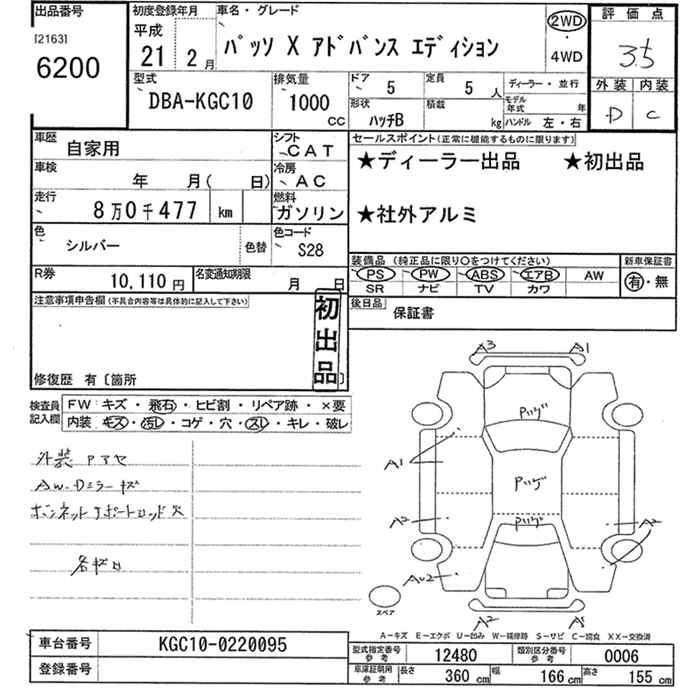 出品番号 初度登録年月 車名・グレード 評価点
[2163] 平成 2WD
6200 21 2月 パッソ X アドバンス エディション ・ 3.5
4WD
型式 排気量 ドア 5 定員 5人 ディーラー・並行 外装 内装
DBA-KGC10 1000cc 形状 ハッチB 積載 kg モデル年式 年 ハンドル 左・右 D C
車歴 自家用 シフト CAT セールスポイント(正常に機能するものに限ります)
車検 年 月( 日) 冷房 AC ★ディーラー出品 ★初出品
走行 8万0千477 km 燃料 ガソリン ★社外アルミ
色 シルバー 色替 色コード S28
装備品 (純正品に限り○をつけてください) 新車保証書
PS PW ABS エアB AW 有・無
R券 10,110円 名変通知期限 月 日 SR ナビ TV カワ
注意事項申告欄(不具合内容等は具体的に記入して下さい) 初出品 後日品 保証書
修復歴 有〔箇所 〕
検査員記入欄 FW キズ・飛石・ヒビ割・リペア跡・×要
内装 キズ・汚レ・コゲ・穴・スレ・キレ・破レ
外装 アマヤ
AW・Dミラーキズ
ボンネットサポートロッド欠
A3 A1
Pツヅ
A1
Pツヅ
Pツヅ
A2 A2
AU2
スペア
A2 A1
A-キズ E-エクボ U-凹み W-補修跡 S-サビ C-腐食 XX-交換済
車台番号 KGC10-0220095
型式指定番号 参考 12480 類別区分番号 参考 0006
登録番号
車庫証明用 参考 長さ 360cm 幅 166cm 高さ 155cm